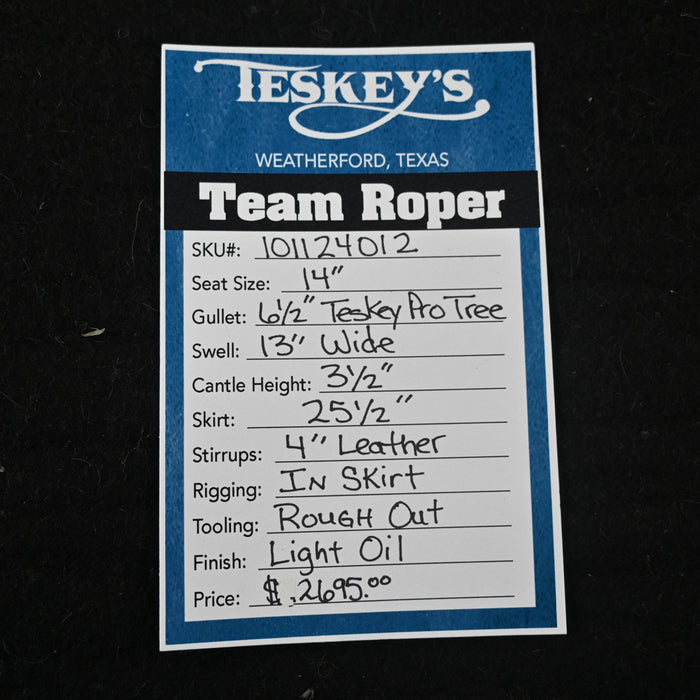 TESKEY'S
WEATHERFORD, TEXAS
Team Roper
SKU#: 101124012
Seat Size: 14"
Gullet: 6½" Teskey Pro Tree
Swell: 13" Wide
Cantle Height: 3½"
Skirt: 25½"
Stirrups: 4" Leather
Rigging: IN SKirt
Tooling: ROUGH Out
Finish: Light Oil
Price: $ 2695.00